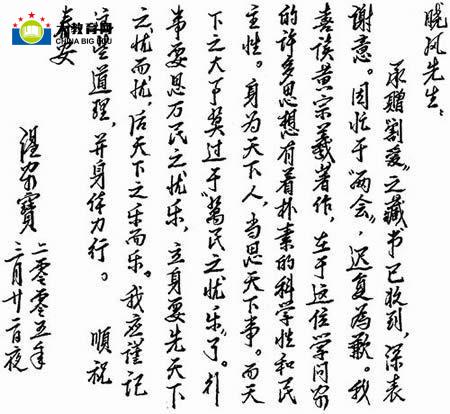 晓风先生：
承赠“割爱”之藏书已收到，深表
谢意。因忙于“两会”，迟复為歉。我
喜读黄宗羲著作，在于这位学问家
的许多思想有着朴素的科学性和民
主性。身为天下人，当思天下事。而天
下之大事莫过于“萬民之忧乐”了。行
事要思万民之忧乐，立身要先天下
之忧而忧，后天下之乐而乐。我应谨记
这些道理，并身体力行。 順祝
春安
温家寶
二零零五年
三月廿一日夜
教育网
CHINA BIG EDU